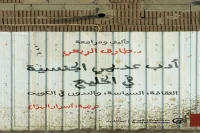 تأليف ومراجعة
د. طارق الربعي
أدب عديمي الجنسية
في الخليج
الثقافة، السياسة، والبدون في الكويت
ترجمة: